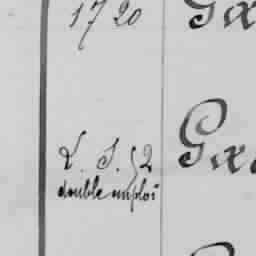 1720
Gx
L. S. § 2
double emploi
Gx